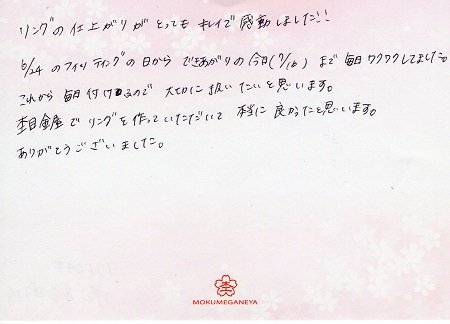 リングの仕上がりがとってもキレイで感動しました!!
6/24 のフィッティングの日から できあがりの今日(7/16) まで 毎日ワクワクしてました。
これから 毎日付けるので 大切に扱いたいと思います。
杢目金屋で リングを作っていただいて 本当に 良かったと思います。
ありがとうございました。
MOKUMEGANEYA